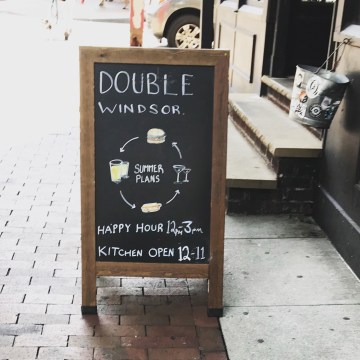 DOUBLE
WINDSOR.
SUMMER
PLANS
HAPPY HOUR 12pm-3pm
KITCHEN OPEN 12-11